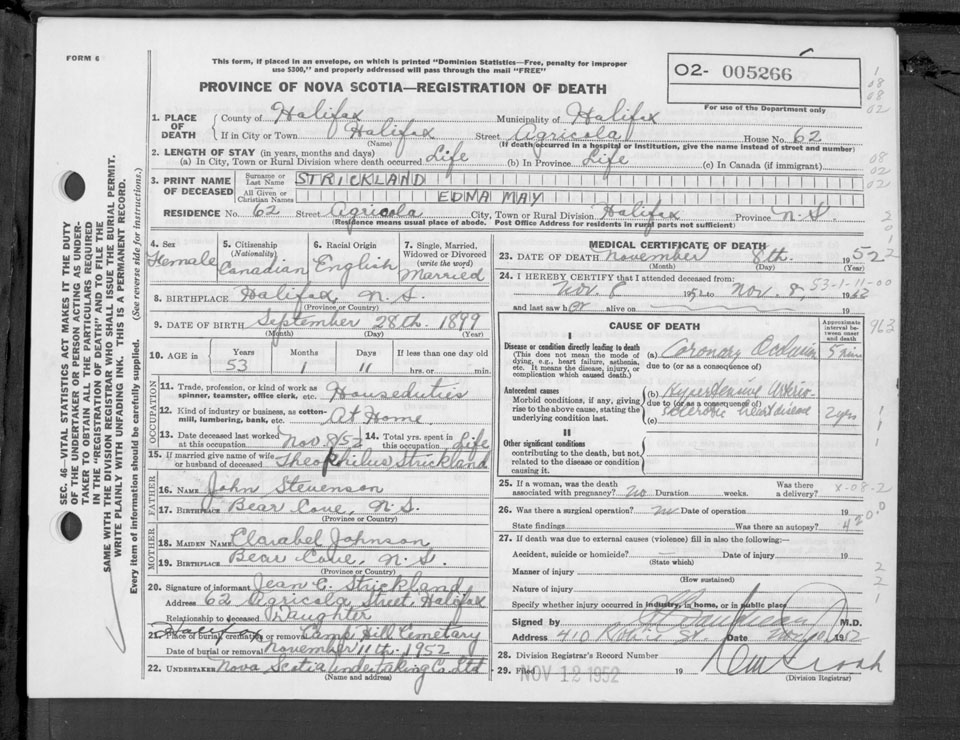 FORM 6
This form, if placed in an envelope, on which is printed "Dominion Statistics—Free, penalty for improper
use $300," and properly addressed will pass through the mail "FREE"
PROVINCE OF NOVA SCOTIA—REGISTRATION OF DEATH
02- 005266
For use of the Department only
1. PLACE OF DEATH
County of Halifax Municipality of Halifax
If in City or Town Halifax Street Agricola House No. 62
(Name) (If death occurred in a hospital or institution, give the name instead of street and number)
2. LENGTH OF STAY (in years, months and days)
(a) In City, Town or Rural Division where death occurred Life (b) In Province Life (c) In Canada (if immigrant)
3. PRINT NAME OF DECEASED
Surname or Last Name STRICKLAND
All Given or Christian Names EDNA MAY
RESIDENCE No. 62 Street Agricola City, Town or Rural Division Halifax Province N.S.
(Residence means usual place of abode. Post Office Address for residents in rural parts not sufficient)
4. Sex
Female
5. Citizenship (Nationality)
Canadian
6. Racial Origin
English
7. Single, Married, Widowed or Divorced (write the word)
Married
8. BIRTHPLACE Halifax, N.S.
(Province or Country)
9. DATE OF BIRTH September 28th. 1899
(Month) (Day) (Year)
10. AGE in Years Months Days If less than one day old
53 1 11 hrs. or min.
OCCUPATION
11. Trade, profession, or kind of work as spinner, teamster, office clerk, etc. Houseduties
12. Kind of industry or business, as cotton-mill, lumbering, bank, etc. At Home.
13. Date deceased last worked at this occupation Nov 8/52 14. Total yrs. spent in this occupation Life
15. If married give name of wife or husband of deceased Theophilus Strickland
FATHER
16. NAME John Stevenson
17. BIRTHPLACE Bear Cove, N.S.
(Province or Country)
MOTHER
18. MAIDEN NAME Clarabel Johnson
19. BIRTHPLACE Bear Cove, N.S.
(Province or Country)
20. Signature of informant Jean C. Strickland
Address 62 Agricola Street, Halifax
Relationship to deceased Daughter
Halifax
21. Place of burial, cremation or removal Camp Hill Cemetary
Date of burial or removal November 11th. 1952
22. UNDERTAKER Nova Scotia Undertaking Co. Ltd
(Name and address)
MEDICAL CERTIFICATE OF DEATH
23. DATE OF DEATH November 8th. 1952
(Month) (Day) (Year)
24. I HEREBY CERTIFY that I attended deceased from:
Nov. 8 1952 to Nov. 8, 1952
53-1-11-00
and last saw her alive on 19
CAUSE OF DEATH
Approximate interval between onset and death
963
I
Disease or condition directly leading to death
(This does not mean the mode of dying, e.g., heart failure, asthenia, etc. It means the disease, injury or complication which caused death.)
(a) Coronary Occlusion 5 mins
due to (or as a consequence of)
Antecedent causes
Morbid conditions, if any, giving rise to the above cause, stating the underlying condition last.
(b) Hypertensive Arterio-
due to (or as a consequence of)
sclerotic heart disease 2 yrs
(c)
II
Other significant conditions
contributing to the death, but not related to the disease or condition causing it.
25. If a woman, was the death associated with pregnancy? no Duration weeks. Was there a delivery?
X-08-2
26. Was there a surgical operation? no Date of operation 19
State findings Was there an autopsy?
420.0
27. If death was due to external causes (violence) fill in also the following:—
Accident, suicide or homicide? Date of injury 19
(State which)
Manner of injury
(How sustained)
Nature of injury
Specify whether injury occurred in industry, in home, or in public place
Signed by M.D.
Address 410 Robie St. Date Nov 10, 1952
28. Division Registrar's Record Number
29. Filed NOV 12 1952 19
(Division Registrar)
SEC. 46—VITAL STATISTICS ACT MAKES IT THE DUTY
OF THE UNDERTAKER OR PERSON ACTING AS UNDER-
TAKER TO OBTAIN ALL THE PARTICULARS REQUIRED
IN THE "REGISTRATION OF DEATH" AND TO FILE THE
SAME WITH THE DIVISION REGISTRAR WHO SHALL ISSUE THE BURIAL PERMIT.
WRITE PLAINLY WITH UNFADING INK. THIS IS A PERMANENT RECORD.
Every item of information should be carefully supplied. (See reverse side for instructions.)